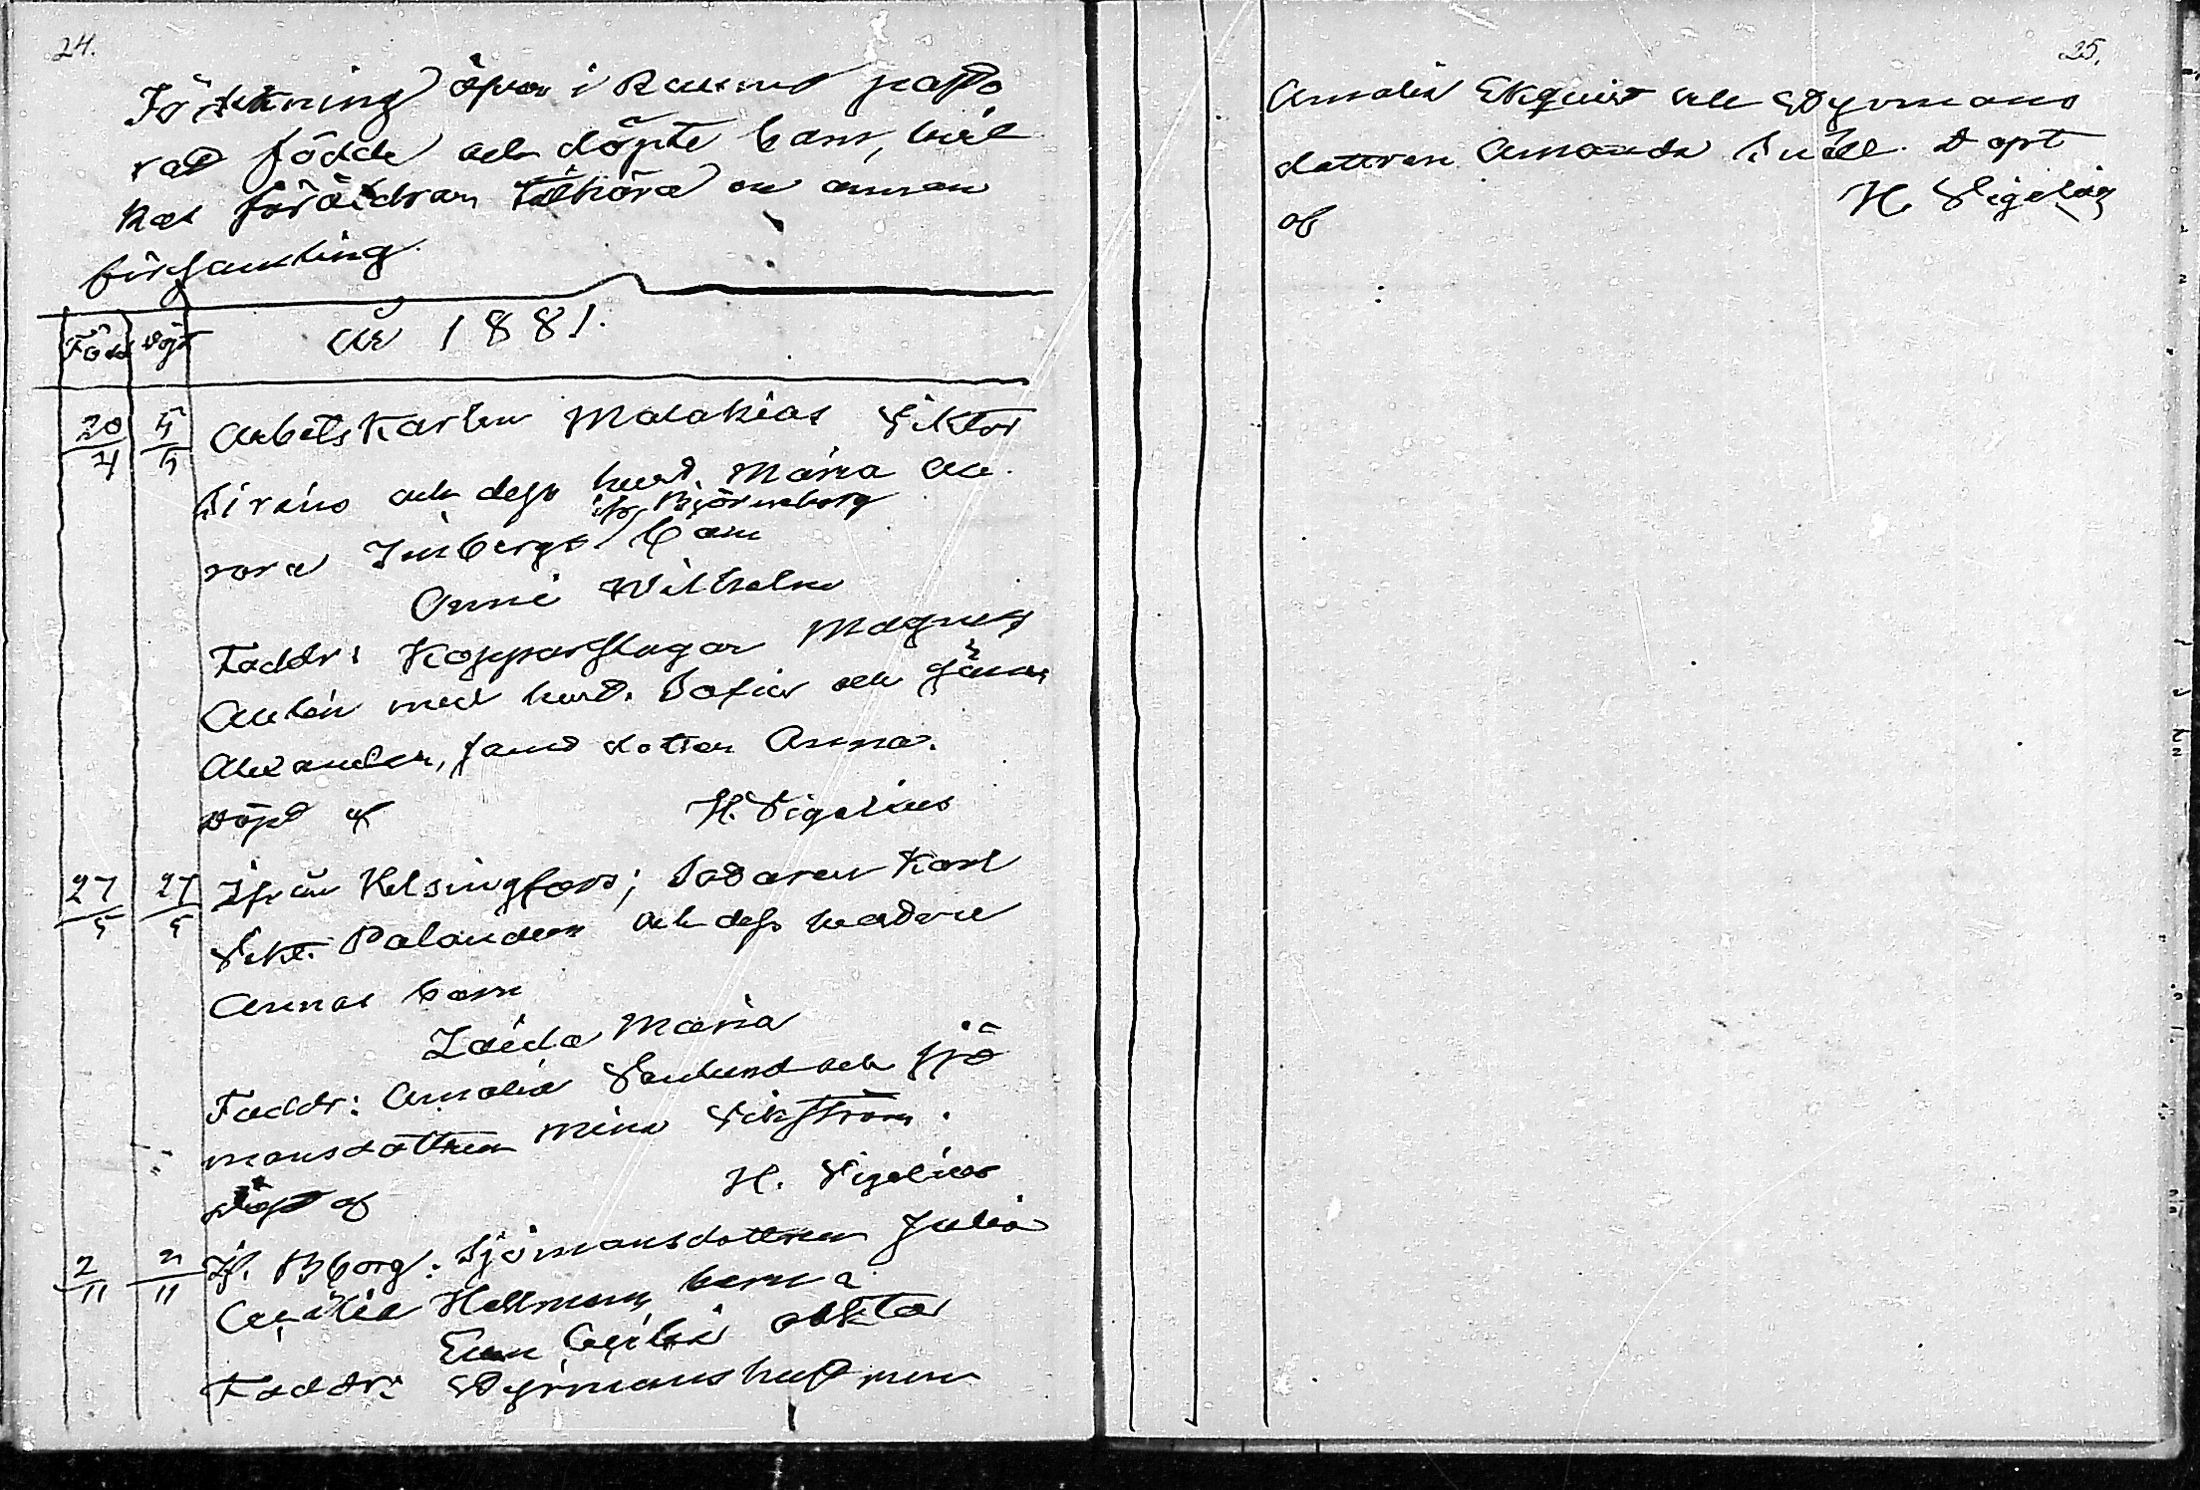 24.
Förteckning öfver i Raumo pasto
rat födde och döpte barn, hvil
kas föräldrar tillhöra en annan
församling.
Född Döpt År 1881.
20/4 5/5 Arbetskarlen Malakias Viktor
Siréns och dess hust. Maria Au
ifr. Björneborg
rora Inbergs barn
Anni Wilhelm
Faddr: Kopparslagar Magnus
Aulén med hust. Sofia och
Alexander, samt dotter Anna.
Döpt af H. Vigelius
27/5 27/5 Ifrån Helsingfors; Sadaren Karl
Vikt. Palander och dess hustru
Annas barn
Zaida Maria
Faddr: Amalia Venlund och sjö
mansdottren Mina Vikström.
Döpt af H. Vigelius
2/11 2/11 Ifr. Bborg: Sjömansdottren Julia
Cecilia Hellmans barn
Cecilia
Faddr: Styrmanshustrun
25.
Amalia Ekqvist och Styrmans
dottren Amanda Snäll. Döpt
af H. Vigelius